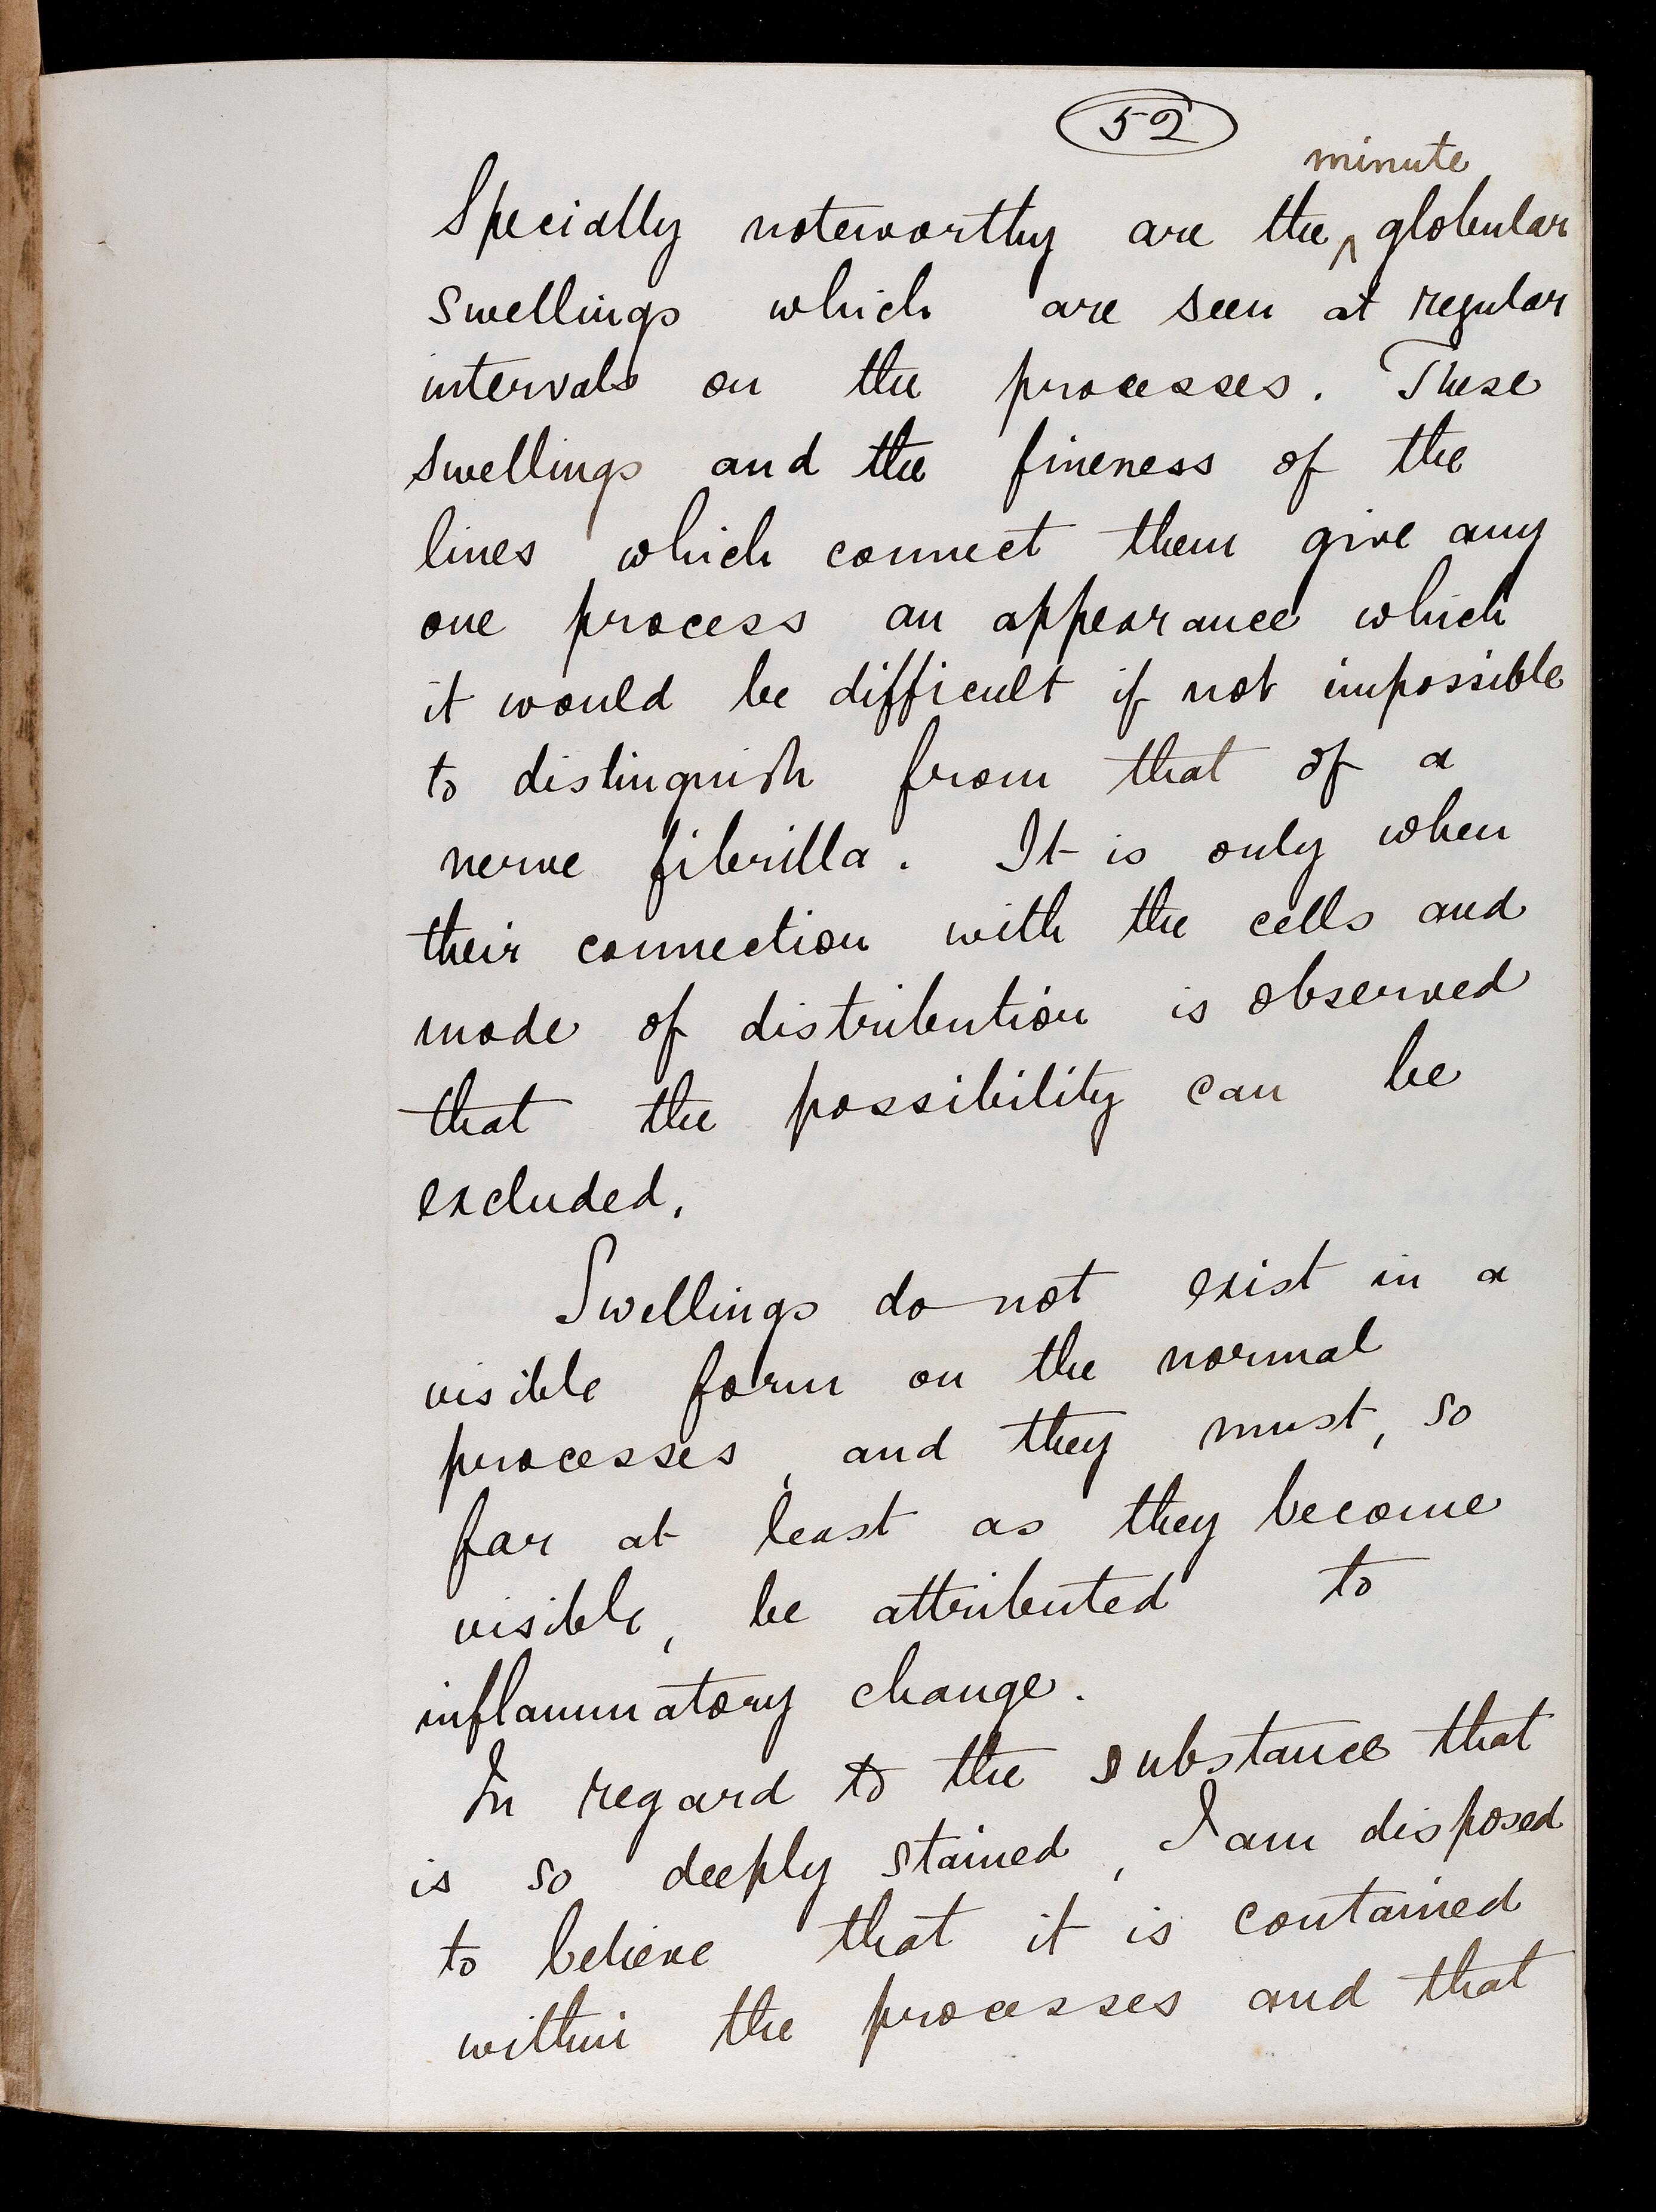 52
minute
Specially noteworthy are the ^ globular
swellings which are seen at regular
intervals on the processes. These
swellings and the fineness of the
lines which connect them give any
one process an appearance which
it would be difficult if not impossible
to distinguish from that of a
nerve fibrilla. It is only when
their connection with the cells and
mode of distribution is observed
that the possibility can be
excluded.
Swellings do not exist in a
visible form on the normal
processes, and they must, so
far at least as they become
visible, be attributed to
inflammatory change.
In regard to the substance that
is so deeply stained, I am disposed
to believe that it is contained
within the processes and that